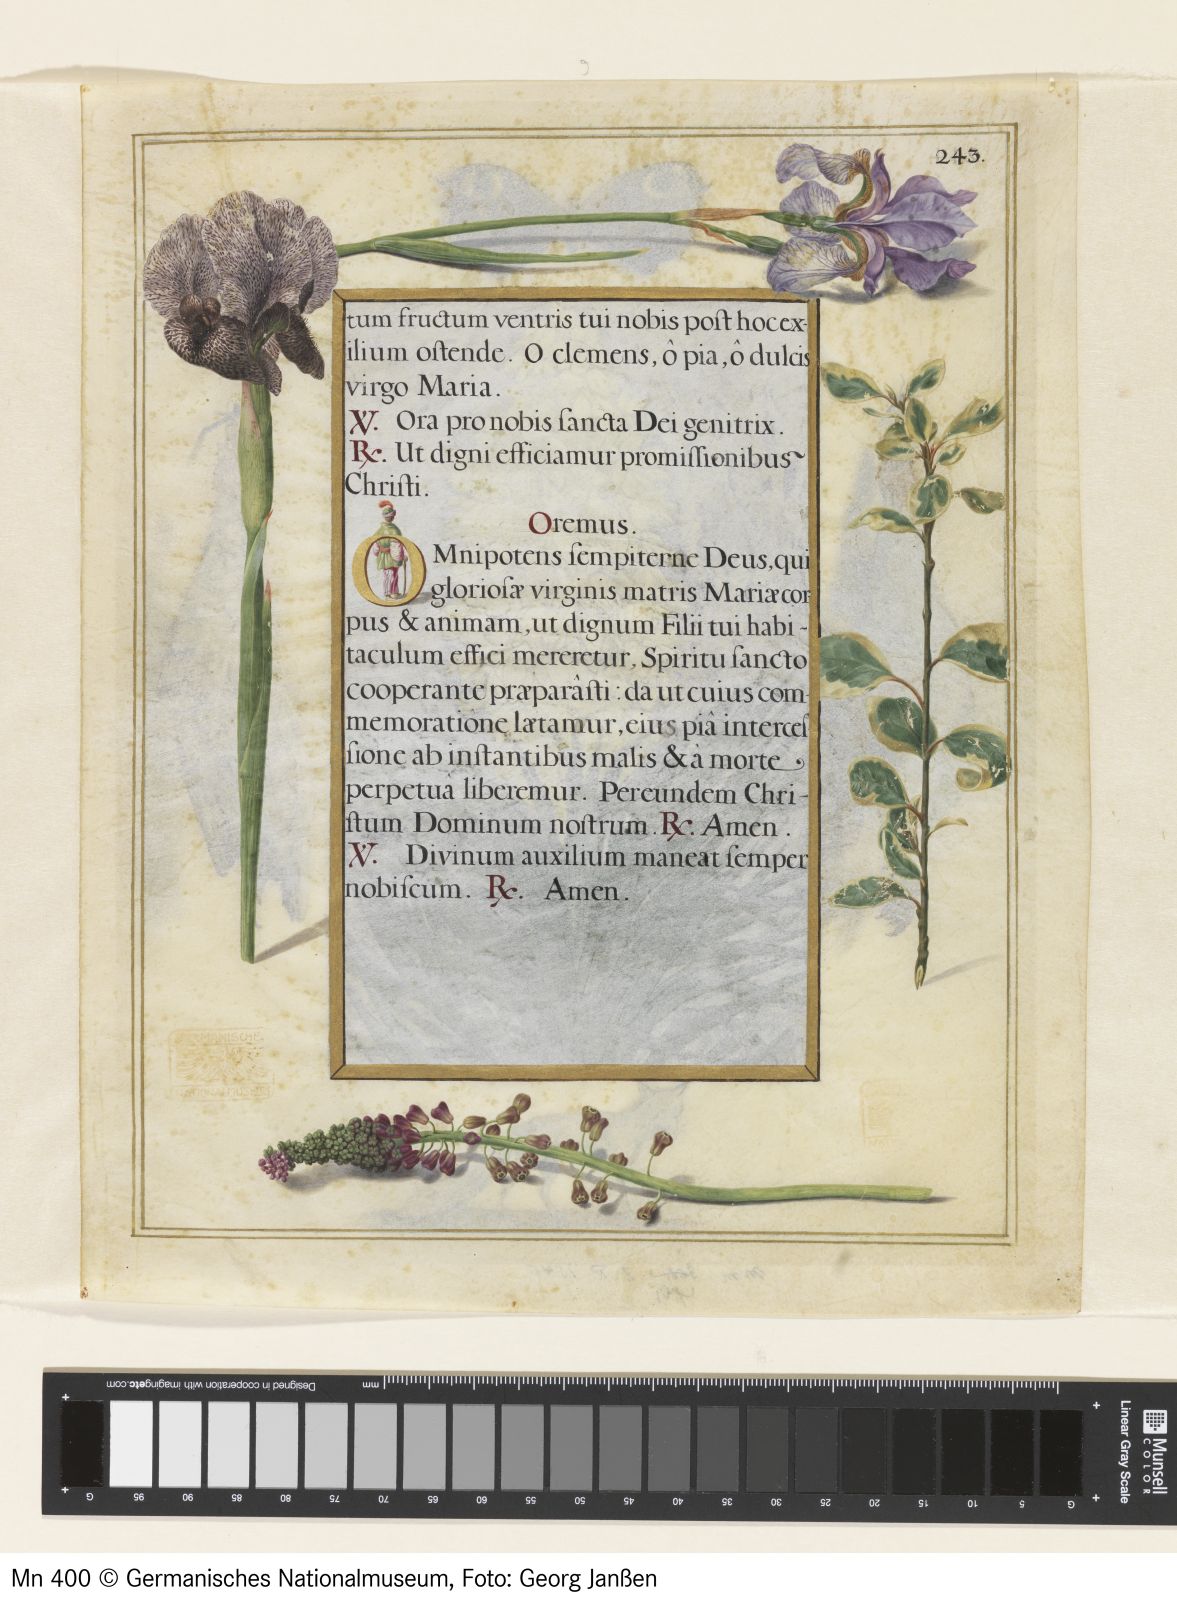 243.
tum fructum ventris tui nobis poſt hoc ex-
ilium oſtende. O clemens, ô pia, ô dulcis
virgo Maria.
℣. Ora pro nobis ſancta Dei genitrix.
℟. Ut digni efficiamur promiſſionibus
Chriſti.
Oremus.
OMnipotens ſempiterne Deus, qui
glorioſæ virginis matris Mariæ cor
pus & animam, ut dignum Filii tui habi-
taculum effici mereretur, Spiritu ſancto
cooperante præparâſti : da ut cuius com-
memoratiône lætamur, eius piâ interceſ
ſione ab inſtantibus malis & à morte
perpetuâ liberemur. Per eundem Chri-
ſtum Dominum noſtrum. ℟. Amen.
℣. Divinum auxilium maneat ſemper
nobiſcum. ℟. Amen.
Designed in cooperation with imagingetc.com
mm
G 95 90 85 80 75 70 65 60 55 50 45 40 35 30 25 20 15 10 5 G
Munsell
COLOR
Linear Gray Scale
Mn 400 © Germanisches Nationalmuseum, Foto: Georg Janßen